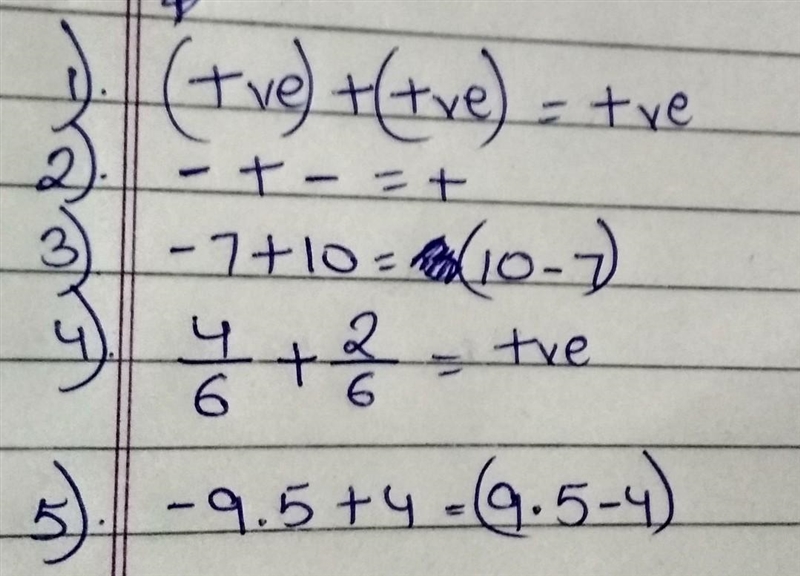 1). (+ve) + (+ve) = +ve
2). - + - = +
3) -7 + 10 = (10 - 7)
4). 4/6 + 2/6 = +ve
5). -9.5 + 4 = (9.5 - 4)